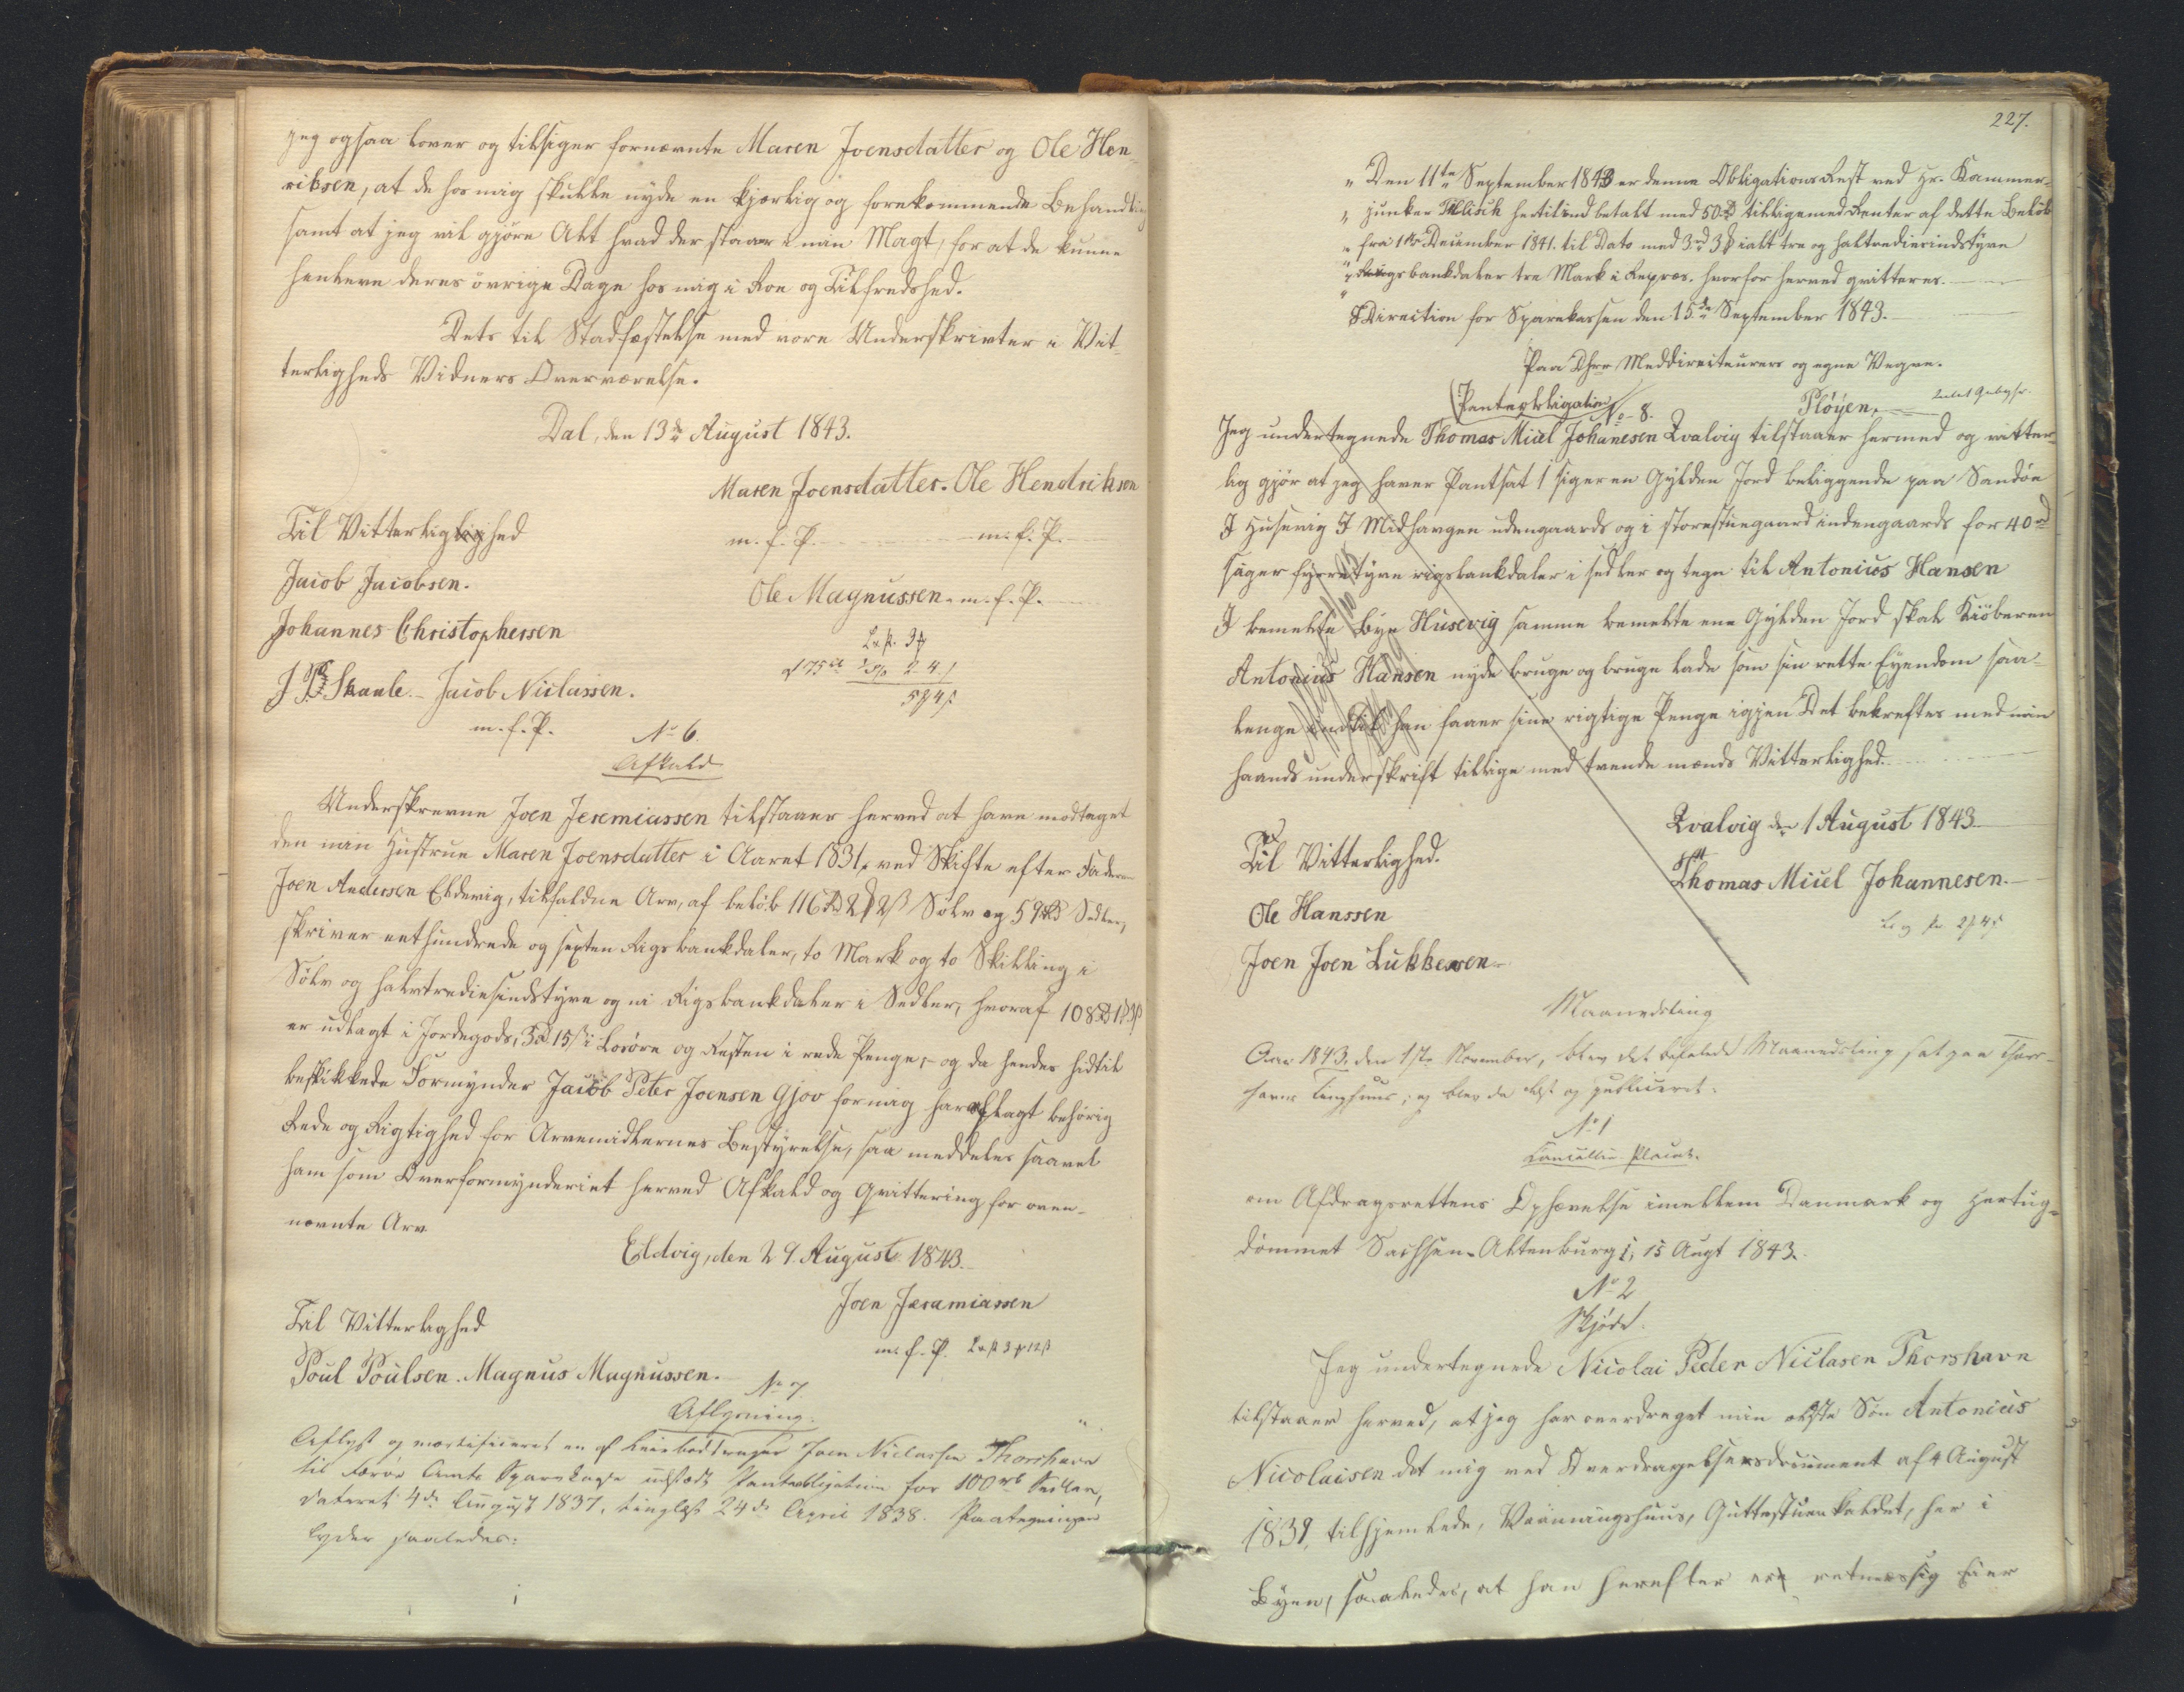 jeg ogsaa lover og tilsiger fornævnte Maren Joensdatter og Ole Hen-
riksen, at de hos mig skulle nyde en kjærlig og forekommende Behandling
samt at jeg vil gjøre Alt hvad der staaer i min Magt, for at de kunne
henleve deres øvrige Dage hos mig i Roe og Tilfredshed.
Dets til Stadfæstelse med vore Underskrivter i Vit-
terligheds Vidners Overværelse.
Dal, den 13de August 1843.
Maren Joensdatter. Ole Hendriksen
Til Vitterlighed
m. f. P. m. f. P.
Jacob Jacobsen.
Ole Magnussen. m. f. P.
Johannes Christophersen
J. P. Skaale. - Jacob Niclassen.
m. f. P.
No 6.
Afkald
Underskrevne Joen Jeremiassen tilstaaer herved at have modtaget
den min Hustrue Maren Joensdatter i Aaret 1831, ved Skifte efter Faderen
Joen Andersen Eldevig, tilfaldne Arv, af beløb 116 Rbd 2 # 2 ß Sølv og 59 Rbd Sedler,
skriver eethundrede og sexten Rigsbankdaler, to Mark og to Skilling i
Sølv og halvtrediesindstyve og ni Rigsbankdaler i Sedler, hvoraf 108
er udlagt i Jordegods, 15 ß i Løsøre og Resten i rede Penge; - og da hendes hidtil
beskikkede Formynder Jacob Peter Joensen Gjov for mig har aflagt behørig
Rede og Rigtighed for Arvemidlernes Bestyrelse, saa meddeles saavel
ham som Overformynderiet herved Afkald og Qvittering for oven-
nævnte Arv
Eldvig, den 29 August 1843.
Joen Jeramiassen
Til Vitterlighed
m. f. P.
Poul Poulsen. Magnus Magnussen.
No 7.
Aflysning.
Aflyst og mortificeret en af Joen Niclassen Thorshavn
til Færøe Amts Sparekasse udstædt Pantobligation for 100 rb Sedler,
dateret 4de August 1837, tinglæst 24de April 1838. Paategningen
lyder saaledes:
227.
" Den 11te September 1843 er denne Obligations Rest ved Hr. Kammer-
" junker Tillisch hertil indbetalt med 50 tilligemed Renter af dette Beløb
" fra 11te December 1841. til Dato med 3 rd 3 # ialt tre og halvtrediesindstyve
" Rigsbankdaler tre Mark i Repræs. hvorfor herved qvitteres.
" Direction for Sparekassen den 15de September 1843.
Paa Dhrr Meddirecteurers og egne Vegne.
Pløyen.
(Pantobligation) No 8.
Jeg undertegnede Thomas Micel Johanesen Qvalvig tilstaaer hermed og vitter-
lig gjør at jeg haver Pantsat 1 siger en Gylden Jord beliggende paa Sandøe
I Husevig I Midhavgen udengaards og i storestuegaard indengaards for 40 rd
siger fyrretyve rigsbankdaler i sedler og tegn til Antonius Hansen
I bemelte Bye Husevig samme bemelte ene Gylden Jord skal Kiöberen
Antonius Hansen nyde bruge og bruge lade som sin rette Eyendom saa-
lenge indtil han faaer sine rigtige Penge igjen Det bekreftes med min
haands underskrift tillige med tvende mænds Vitterlighed.
Qvalvig den 1 August 1843
Til Vitterlighed.
Thomas Micel Johannesen.
Ole Hanssen
Joen Joen Lukkessen
Maanedsting
Aar 1843. den 1ste November, blev det befalede Maanedsting sat paa Thors-
havns Tinghuus; og blev da læst og publiceret:
No 1
Cancellie Placat.
om Afdragsrettens Ophævelse imellem Danmark og Hertug-
dömmet Sachsen-Altenburg, 15 Augt 1843.
No 2
Skjøde.
Jeg undertegnede Nicolai Peder Niclasen Thorshavn
tilstaaer herved, at jeg har overdraget min ældste Søn Antonius
Nicolaisen det mig ved Overdragelsesdocument af 4 August
1839, tilhjemlede, Vaaningshuus, Guttestuen kaldet, her i
Byen, saaledes, at han herefter er retmæssig Eier